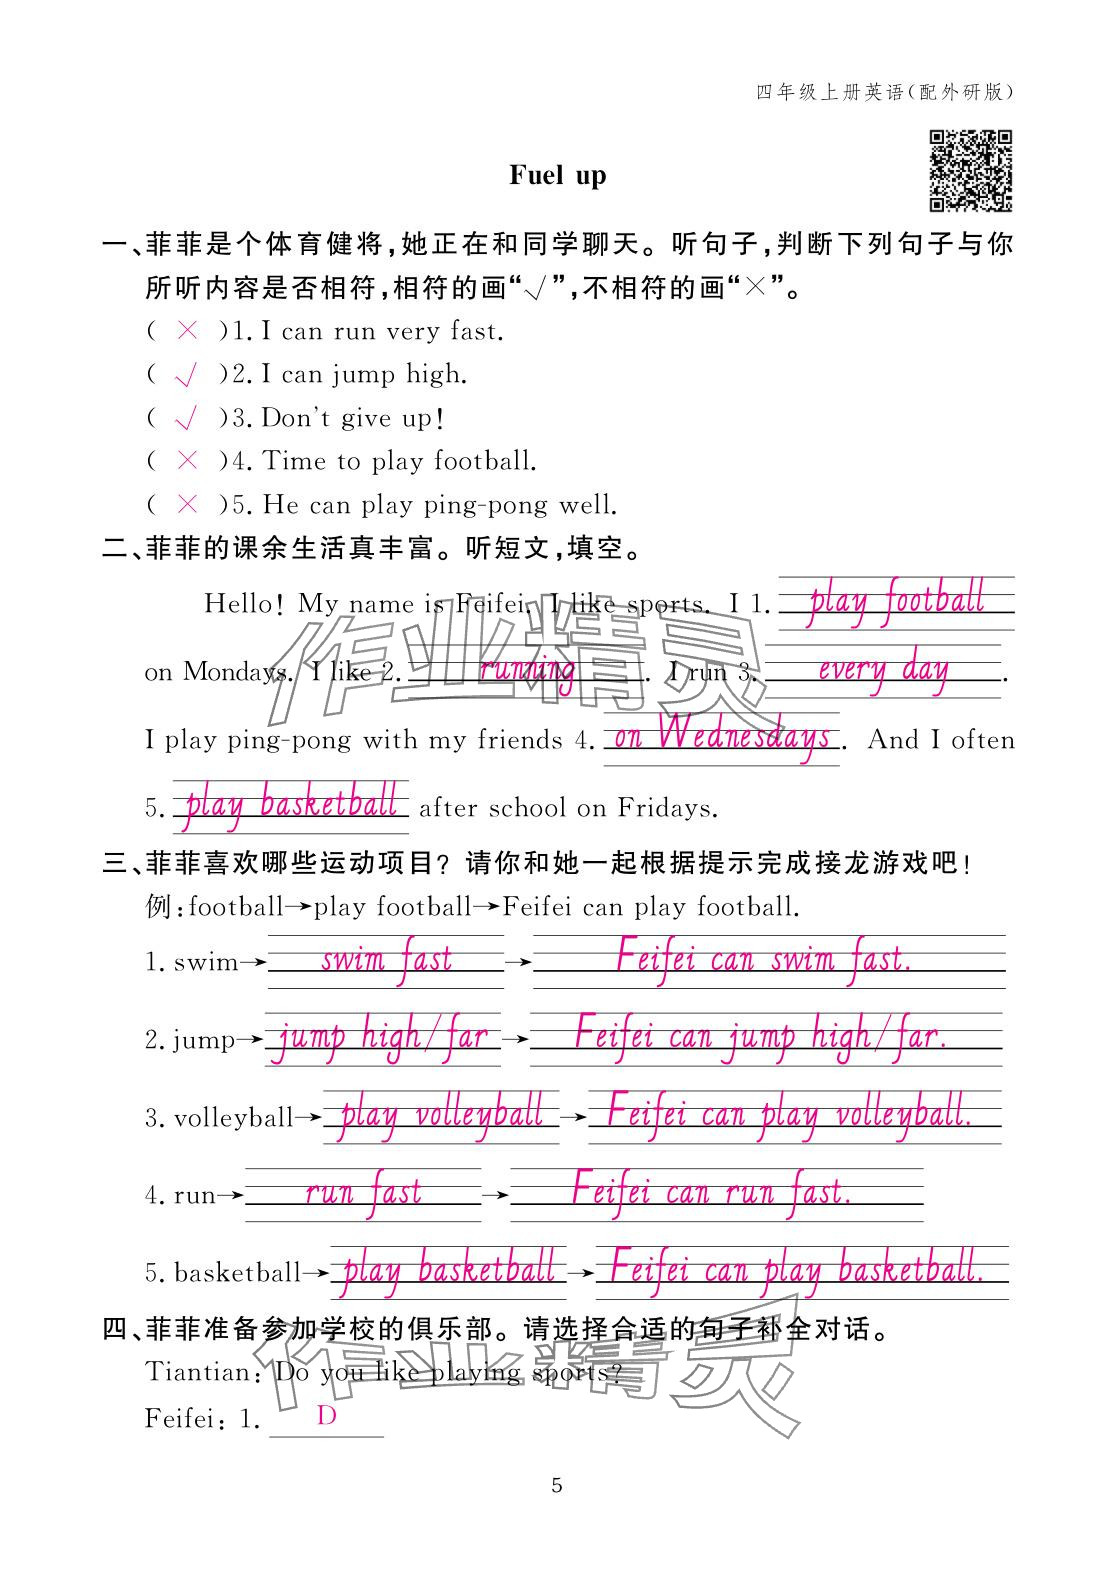 四年级上册英语(配外研版)
Fuel up
一、菲菲是个体育健将,她正在和同学聊天。听句子,判断下列句子与你
所听内容是否相符,相符的画“√”,不相符的画“×”。
( × )1. I can run very fast.
( √ )2. I can jump high.
( √ )3. Don't give up!
( × )4. Time to play football.
( × )5. He can play ping-pong well.
二、菲菲的课余生活真丰富。听短文,填空。
Hello! My name is Feifei. I like sports. I 1. play football
on Mondays. I like 2. running . I run 3. every day .
I play ping-pong with my friends 4. on Wednesdays . And I often
5. play basketball after school on Fridays.
三、菲菲喜欢哪些运动项目? 请你和她一起根据提示完成接龙游戏吧!
例:football→play football→Feifei can play football.
1. swim→ swim fast → Feifei can swim fast.
2. jump→ jump high/far → Feifei can jump high/far.
3. volleyball→ play volleyball → Feifei can play volleyball.
4. run→ run fast → Feifei can run fast.
5. basketball→ play basketball → Feifei can play basketball.
四、菲菲准备参加学校的俱乐部。请选择合适的句子补全对话。
Tiantian: Do you like playing sports?
Feifei: 1. D
5
作业精灵
作业精灵